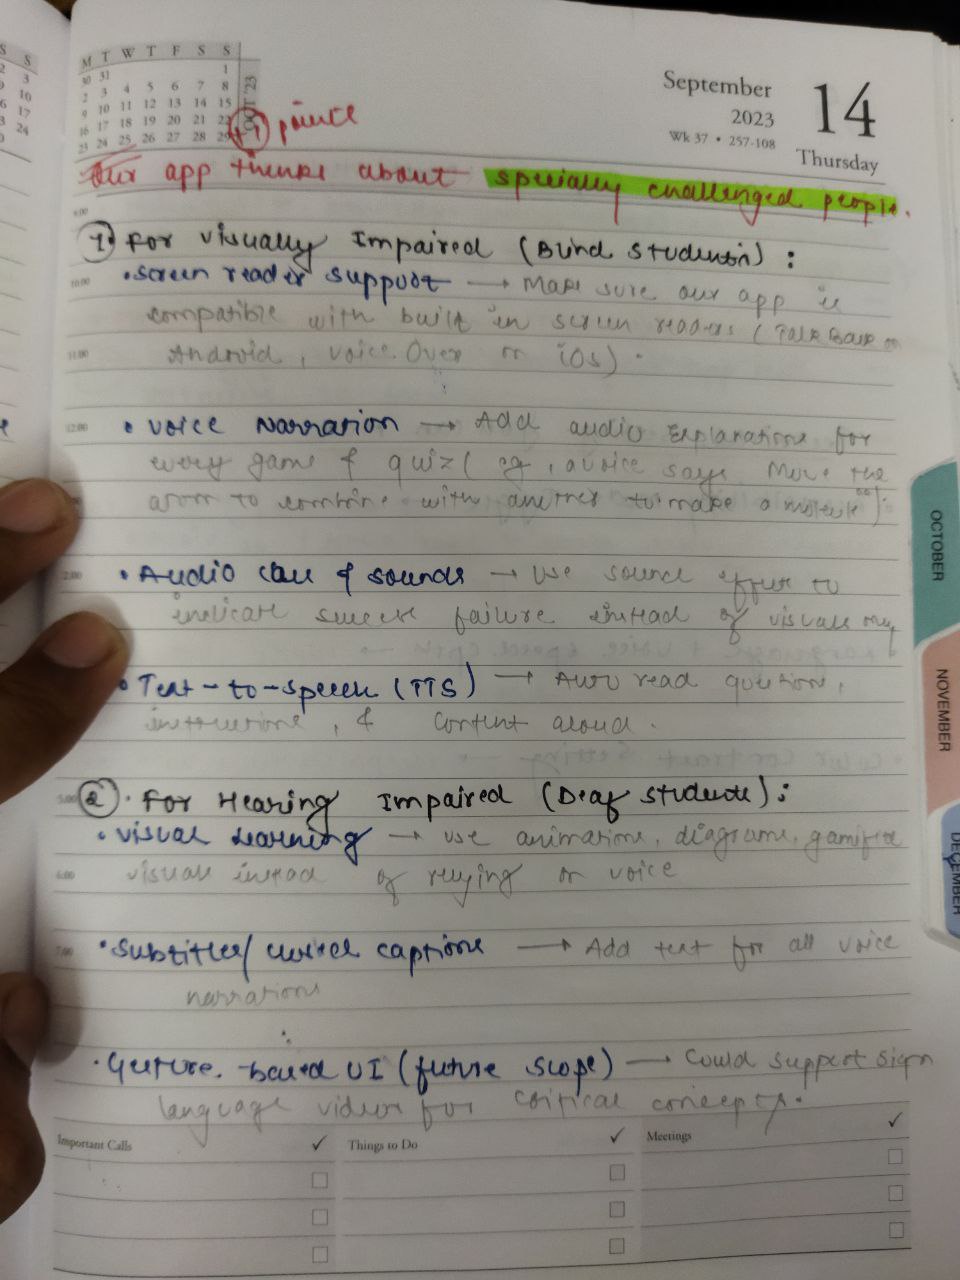 M T W T F S S
30 31 1
2 3 4 5 6 7 8
9 10 11 12 13 14 15
16 17 18 19 20 21 22
23 24 25 26 27 28 29
OCT '23
September 14
2023
Wk 37 • 257-108
Thursday
+1 point
Our app thinks about specially challenged people.
1. For Visually Impaired (Blind Students) :
• Screen reader support → Make sure our app is
compatible with built in screen readers (TalkBack on
Android, VoiceOver on iOS).
12:00 • Voice Narration → Add audio explanations for
every game & quiz ( eg, a voice says Move the
atom to combine with another to make a molecule").
2:00 • Audio cues & sounds → Use sound effect to
indicate success failure instead of visuals only
• Text-to-speech (TTS) → Auto read questions,
instructions, & content aloud.
5:00 2. For Hearing Impaired (Deaf students) :
• Visual Learning → use animations, diagrams, gamified
6:00 visuals instead of relying on voice
7:00 • Subtitles/ closed captions → Add text for all voice
narrations
• Gesture-based UI (future scope) → Could support sign
language videos for critical concepts.
Important Calls ✓ Things to Do ✓ Meetings ✓
OCTOBER
NOVEMBER
DECEMBER